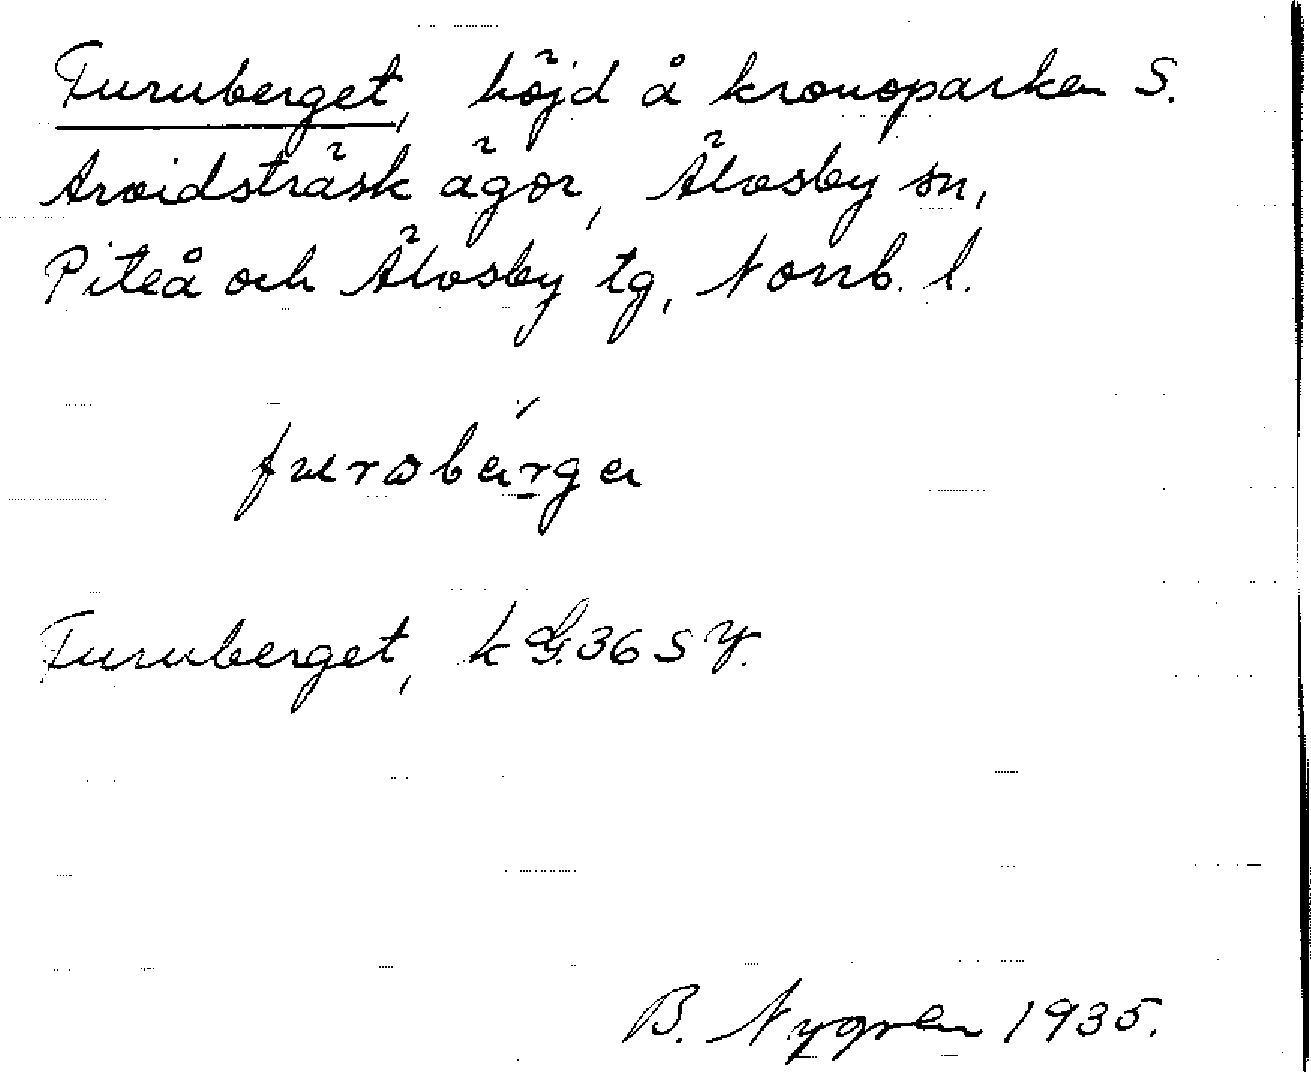 Furuberget, höjd å kronoparken S.
Arvidsträsk ägor, Älvsby sn,
Piteå och Älvsby tg, Norrb. l.
furobärga
Furuberget, k 36 S
B. Nygren 1935.